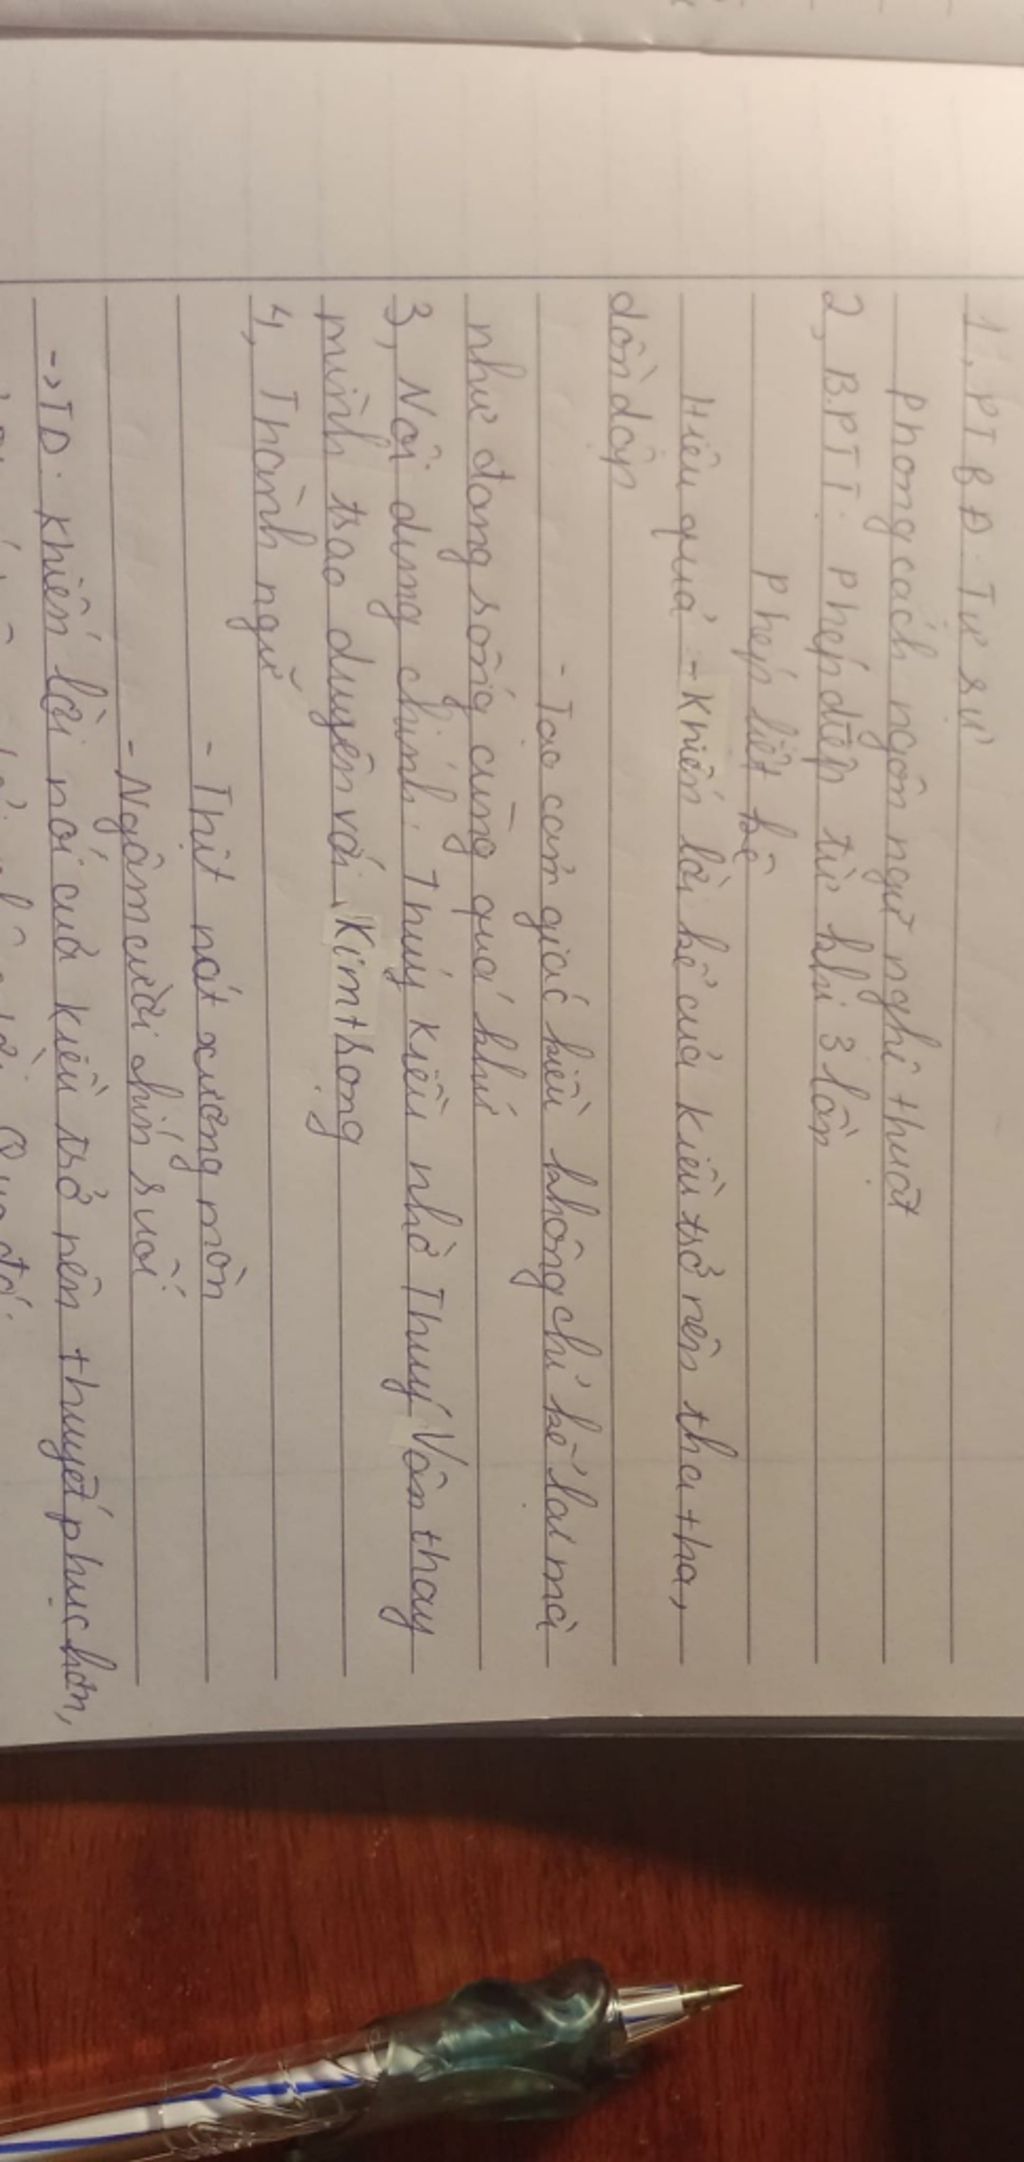 1, PTBĐ: Tự sự
Phong cách ngôn ngữ nghệ thuật
2, BPTT: Phép điệp từ khi 3 lần
Phép liệt kê
Hiệu quả - Khiến lời kể của Kiều trở nên tha tha,
dồn dập
- Tạo cảm giác kiều không chỉ kể lại mà
như đang sống cùng quá khứ
3, Nội dung chính: Thuý Kiều nhờ Thuý Vân thay
mình trao duyên với Kim trọng
4, Thành ngữ
- Thịt nát xương mòn
- Ngậm cười chín suối
-> TD: Khiến lời nói của Kiều trở nên thuyết phục hơn,
Qua đó